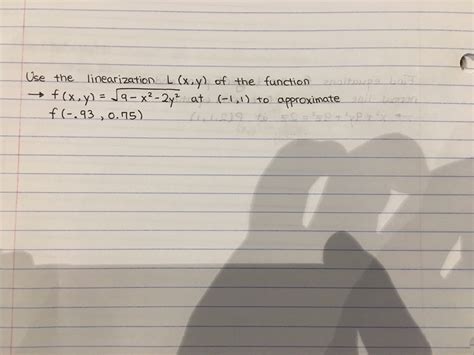 Use the linearization L (x,y) of the function
→ f(x,y) = √9-x²-2y² at (-1,1) to approximate
f(-.93, 0.75)